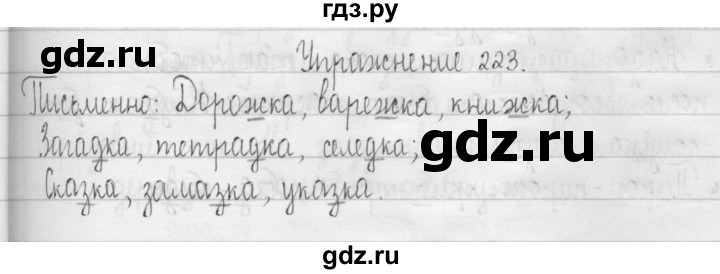 гдз.ру
gdz.ru
Упражнение 223.
Письменно: Дорожка, варежка, книжка;
Загадка, тетрадка, селедка;
gdz.ru
Сказка, замазка, указка.
gdz.ru